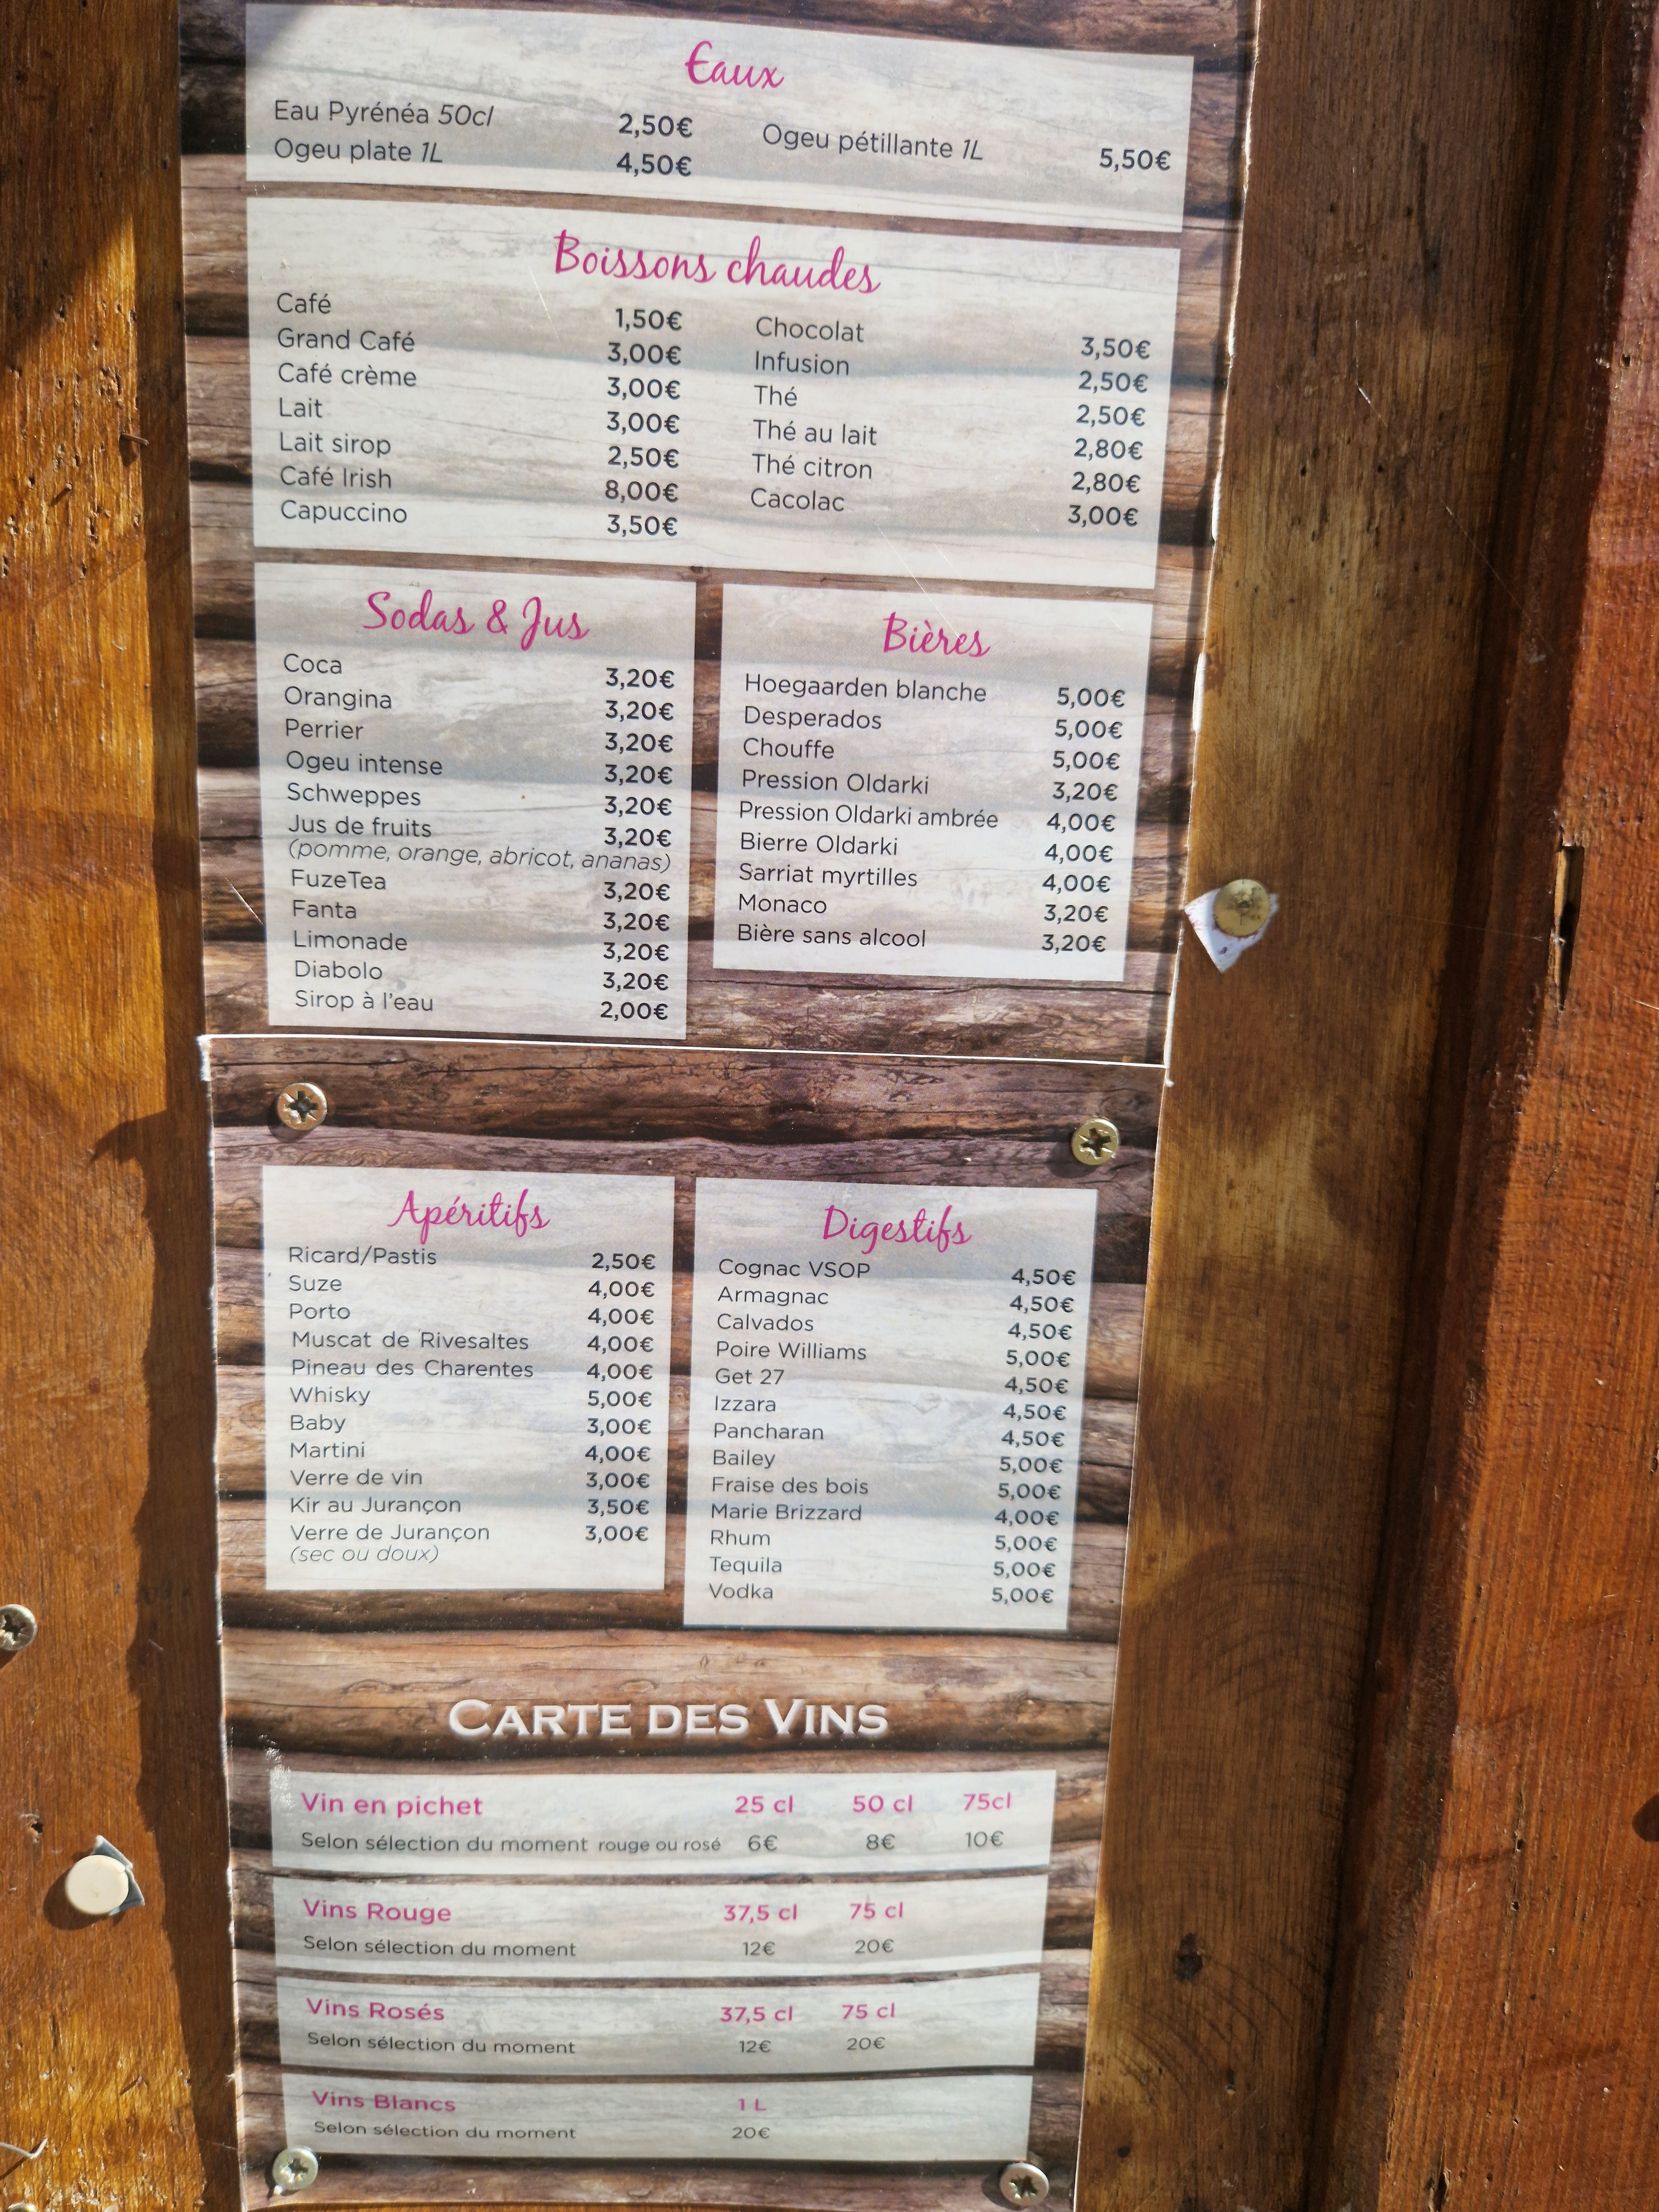 Eaux
Eau Pyrénéa 50cl 2,50€
Ogeu plate 1L 4,50€
Ogeu pétillante 1L 5,50€
Boissons chaudes
Café 1,50€
Grand Café 3,00€
Café crème 3,00€
Lait 3,00€
Lait sirop 2,50€
Café Irish 8,00€
Capuccino 3,50€
Chocolat 3,50€
Infusion 2,50€
Thé 2,50€
Thé au lait 2,80€
Thé citron 2,80€
Cacolac 3,00€
Sodas & Jus
Coca 3,20€
Orangina 3,20€
Perrier 3,20€
Ogeu intense 3,20€
Schweppes 3,20€
Jus de fruits 3,20€
(pomme, orange, abricot, ananas)
FuzeTea 3,20€
Fanta 3,20€
Limonade 3,20€
Diabolo 3,20€
Sirop à l'eau 2,00€
Bières
Hoegaarden blanche 5,00€
Desperados 5,00€
Chouffe 5,00€
Pression Oldarki 3,20€
Pression Oldarki ambrée 4,00€
Bierre Oldarki 4,00€
Sarriat myrtilles 4,00€
Monaco 3,20€
Bière sans alcool 3,20€
Apéritifs
Ricard/Pastis 2,50€
Suze 4,00€
Porto 4,00€
Muscat de Rivesaltes 4,00€
Pineau des Charentes 4,00€
Whisky 5,00€
Baby 3,00€
Martini 4,00€
Verre de vin 3,00€
Kir au Jurançon 3,50€
Verre de Jurançon 3,00€
(sec ou doux)
Digestifs
Cognac VSOP 4,50€
Armagnac 4,50€
Calvados 4,50€
Poire Williams 5,00€
Get 27 4,50€
Izzara 4,50€
Pancharan 4,50€
Bailey 5,00€
Fraise des bois 5,00€
Marie Brizzard 4,00€
Rhum 5,00€
Tequila 5,00€
Vodka 5,00€
CARTE DES VINS
Vin en pichet 25 cl 50 cl 75cl
Selon sélection du moment rouge ou rosé 6€ 8€ 10€
Vins Rouge 37,5 cl 75 cl
Selon sélection du moment 12€ 20€
Vins Rosés 37,5 cl 75 cl
Selon sélection du moment 12€ 20€
Vins Blancs 1 L
Selon sélection du moment 20€